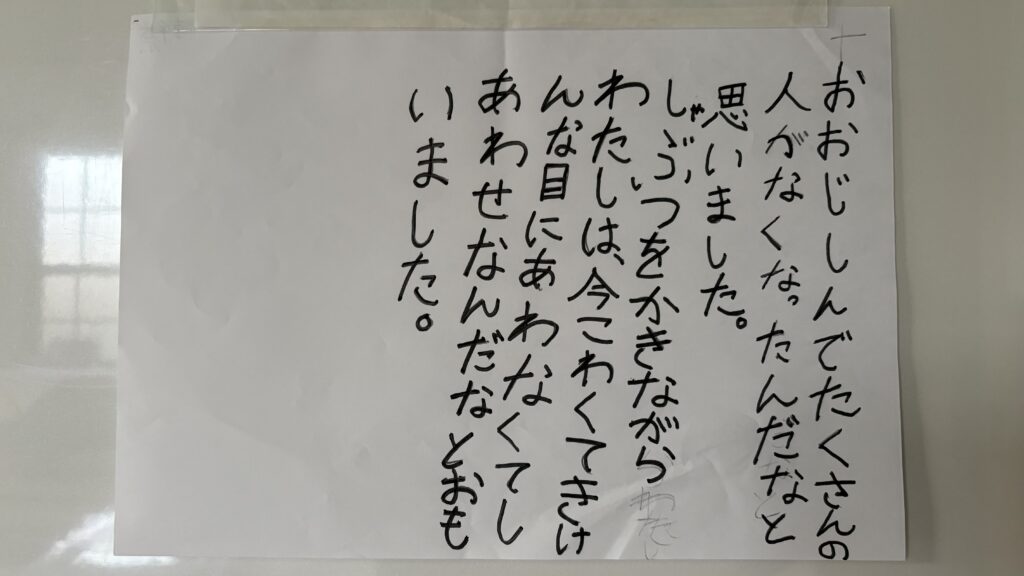 おおじしんでたくさんの
人がなくなったんだなと
思いました。
しゃぶつをかきながら
わたしは、今こわくてきけ
んな目にあわなくてし
あわせなんだなとおも
いました。